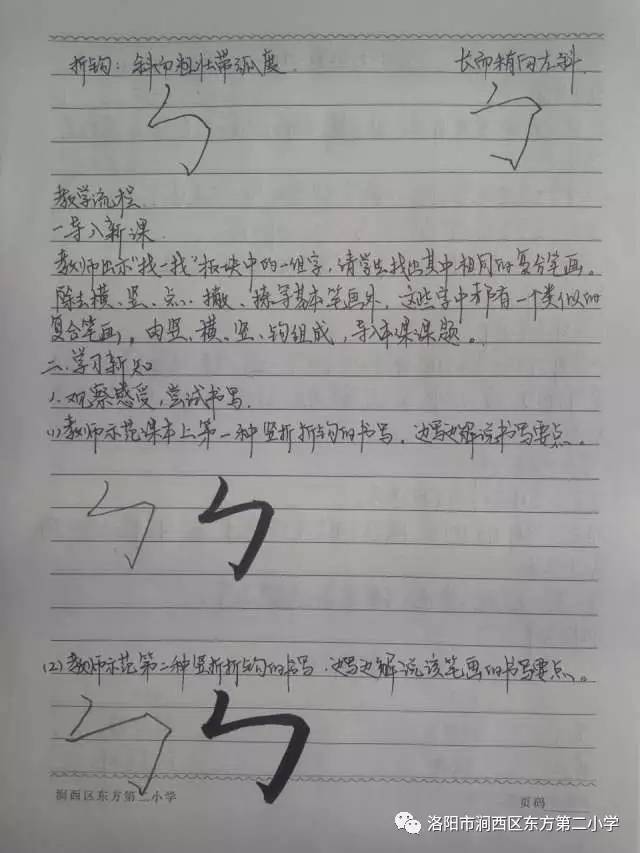 折钩：斜而粗壮带弧度 长而稍向左斜
教学流程
一导入新课
教师出示“找一找”板块中的一组字，请学生找出其中相同的复合笔画。
除去横、竖、点、撇、捺等基本笔画外，这些字中都有一个类似的
复合笔画，由竖、横、竖、钩组成，导入本课课题。
二.学习新知
1.观察感受，尝试书写.
(1)教师示范课本上第一种竖折折钩的书写，边写边解说书写要点。
(2)教师示范第二种竖折折钩的书写，边写边解说该笔画的书写要点。
涧西区东方第二小学 页码
洛阳市涧西区东方第二小学